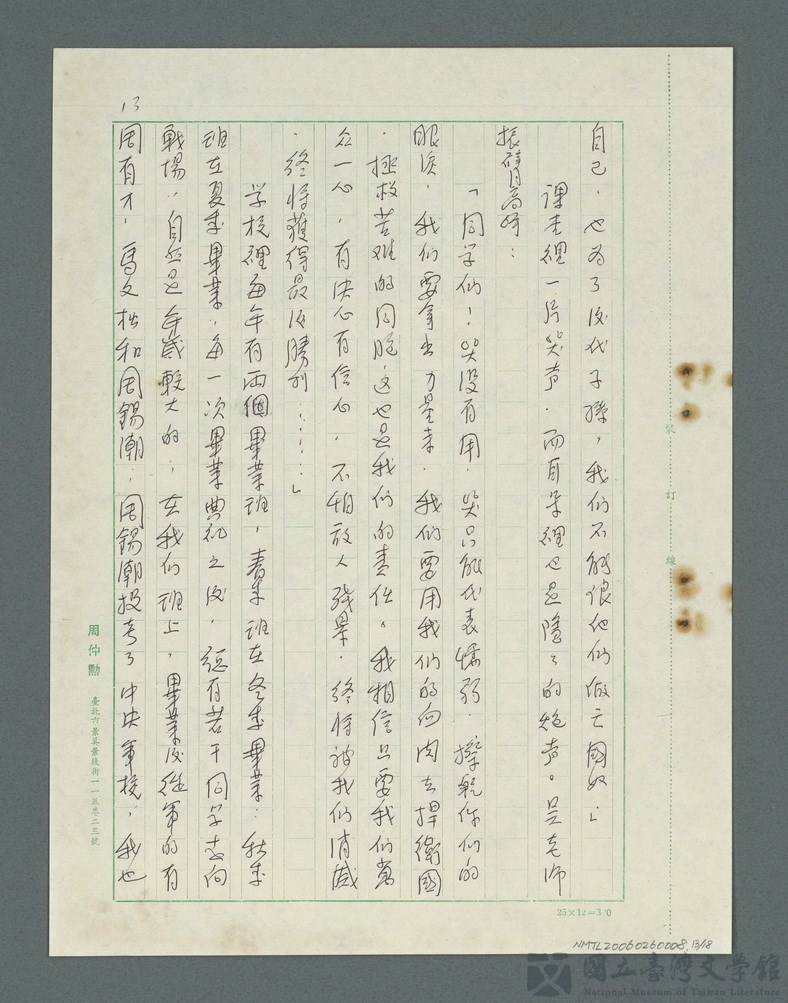 13
自己，也為了後代子孫，我们不能讓他们做亡國奴」
課堂裡一片哭声，而耳朵裡也是隆隆的炮声。吴老师
振臂高呼：
「同学们！哭没有用，哭只能代表懦弱，擦乾你们的
眼淚，我们要拿出力量来，我们要用我们的血肉去捍衛國
，拯救苦难的同胞，这也是我们的責任。我相信只要我们萬
众一心，有决心有信心，不怕敌人残暴，终将被我们消滅
，终将獲得最後勝利……」
学校裡每年有兩個畢業班，春季班在冬季畢業；秋季
班在夏季畢業，每一次畢業典礼之後，總有若干同学志向
戰場，自然是年歲較大的；在我们班上，畢業後從軍的有
周有才，馬文松和周錫潮；周錫潮投考了中央軍校，我也
周仲勳 臺北市景美景後街一一五巷二三號
25×12=300
裝 訂 線
NMTL20060260008,13/18
國立臺灣文學館
National Museum of Taiwan Literature